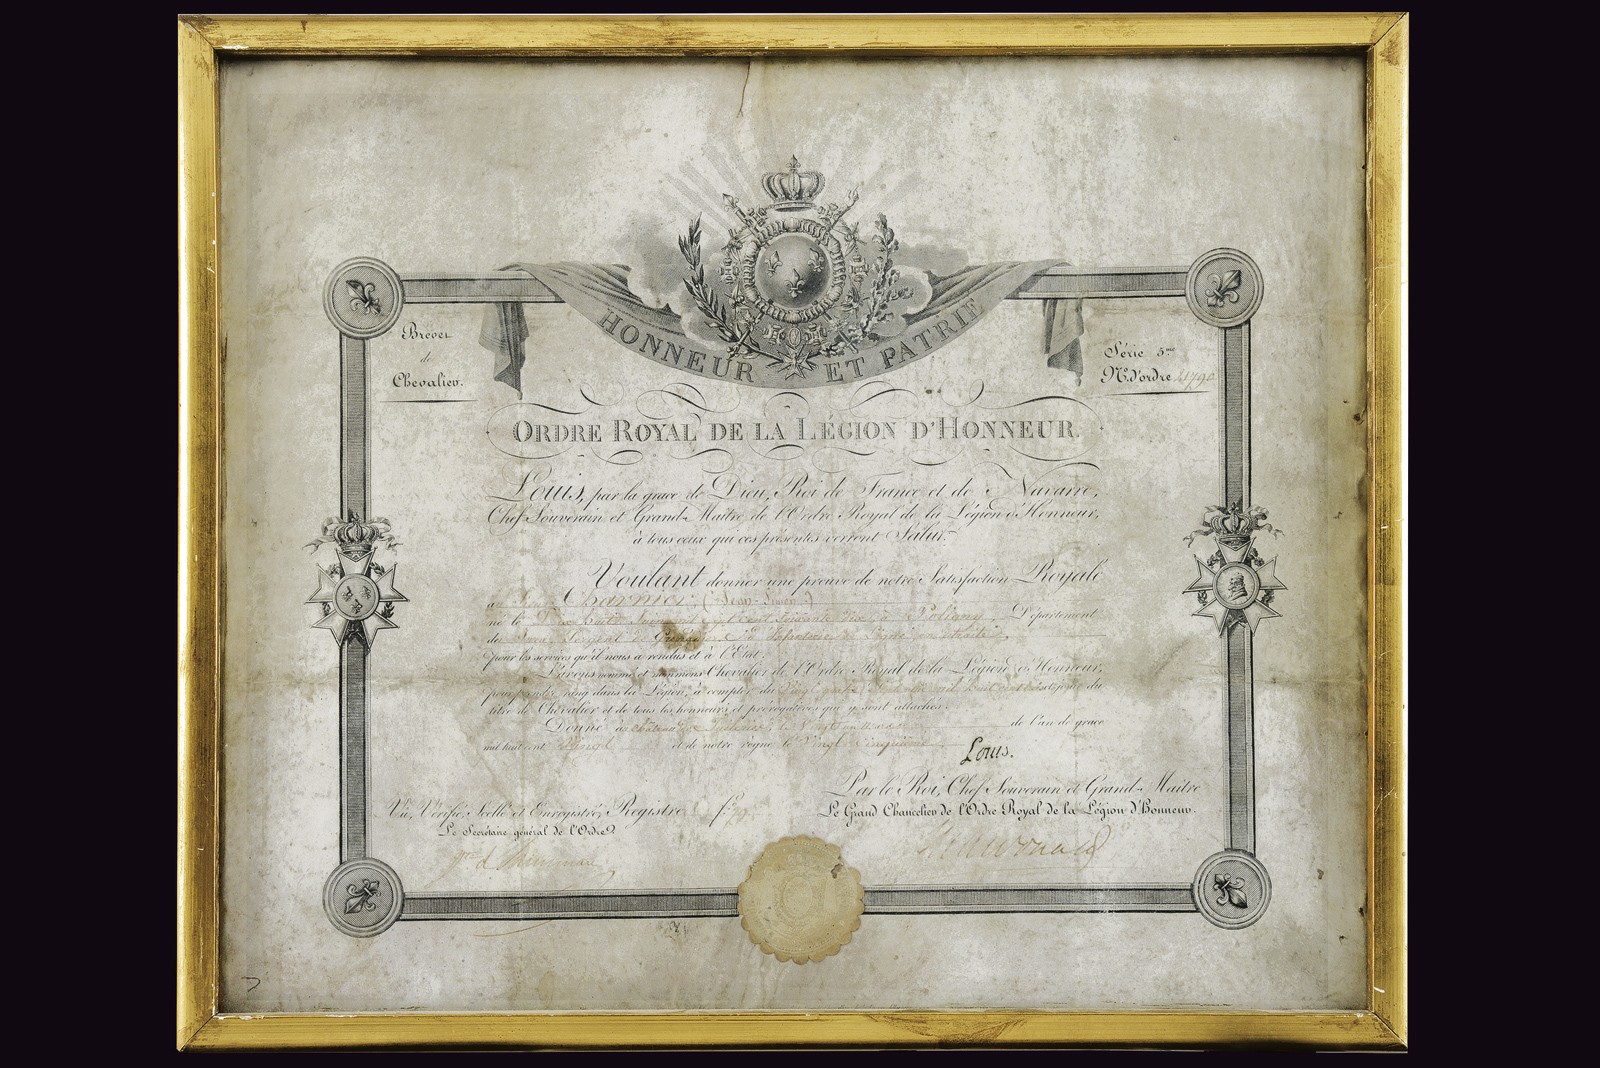 HONNEUR ET PATRIE
Brevet
de
Chevalier.
Série 5me
No. d'ordre
ORDRE ROYAL DE LA LÉGION D'HONNEUR.
Louis, par la grace de Dieu, Roi de France et de Navarre,
Chef Souverain et Grand-Maître de l'Ordre Royal de la Légion d'Honneur,
à tous ceux qui ces présentes verront Salut.
Voulant donner une preuve de notre Satisfaction Royale
au (Jean-Simon)
né le mil sept cent soixante dix à Poligny Département
du Jura, Sergent de en retraite,
pour les services qu'il nous a rendus et à l'Etat.
L'avons nommé et nommons Chevalier de l'Ordre Royal de la Légion d'Honneur,
pour prendre rang dans la Légion, à compter du Vingt quatre mil huit cent jouir du
titre de Chevalier et de tous les honneurs et prérogatives qui y sont attachés.
Donné à château des Tuileries, le de l'an de grace
mil huit cent Vingt et de notre règne le Vingt-Cinquième.
Louis.
Par le Roi, Chef Souverain et Grand-Maître
Le Grand Chancelier de l'Ordre Royal de la Légion d'Honneur.
Vu, Vérifié, Scellé et Enregistré, Registre fo.
Le Secrétaire général de l'Ordre